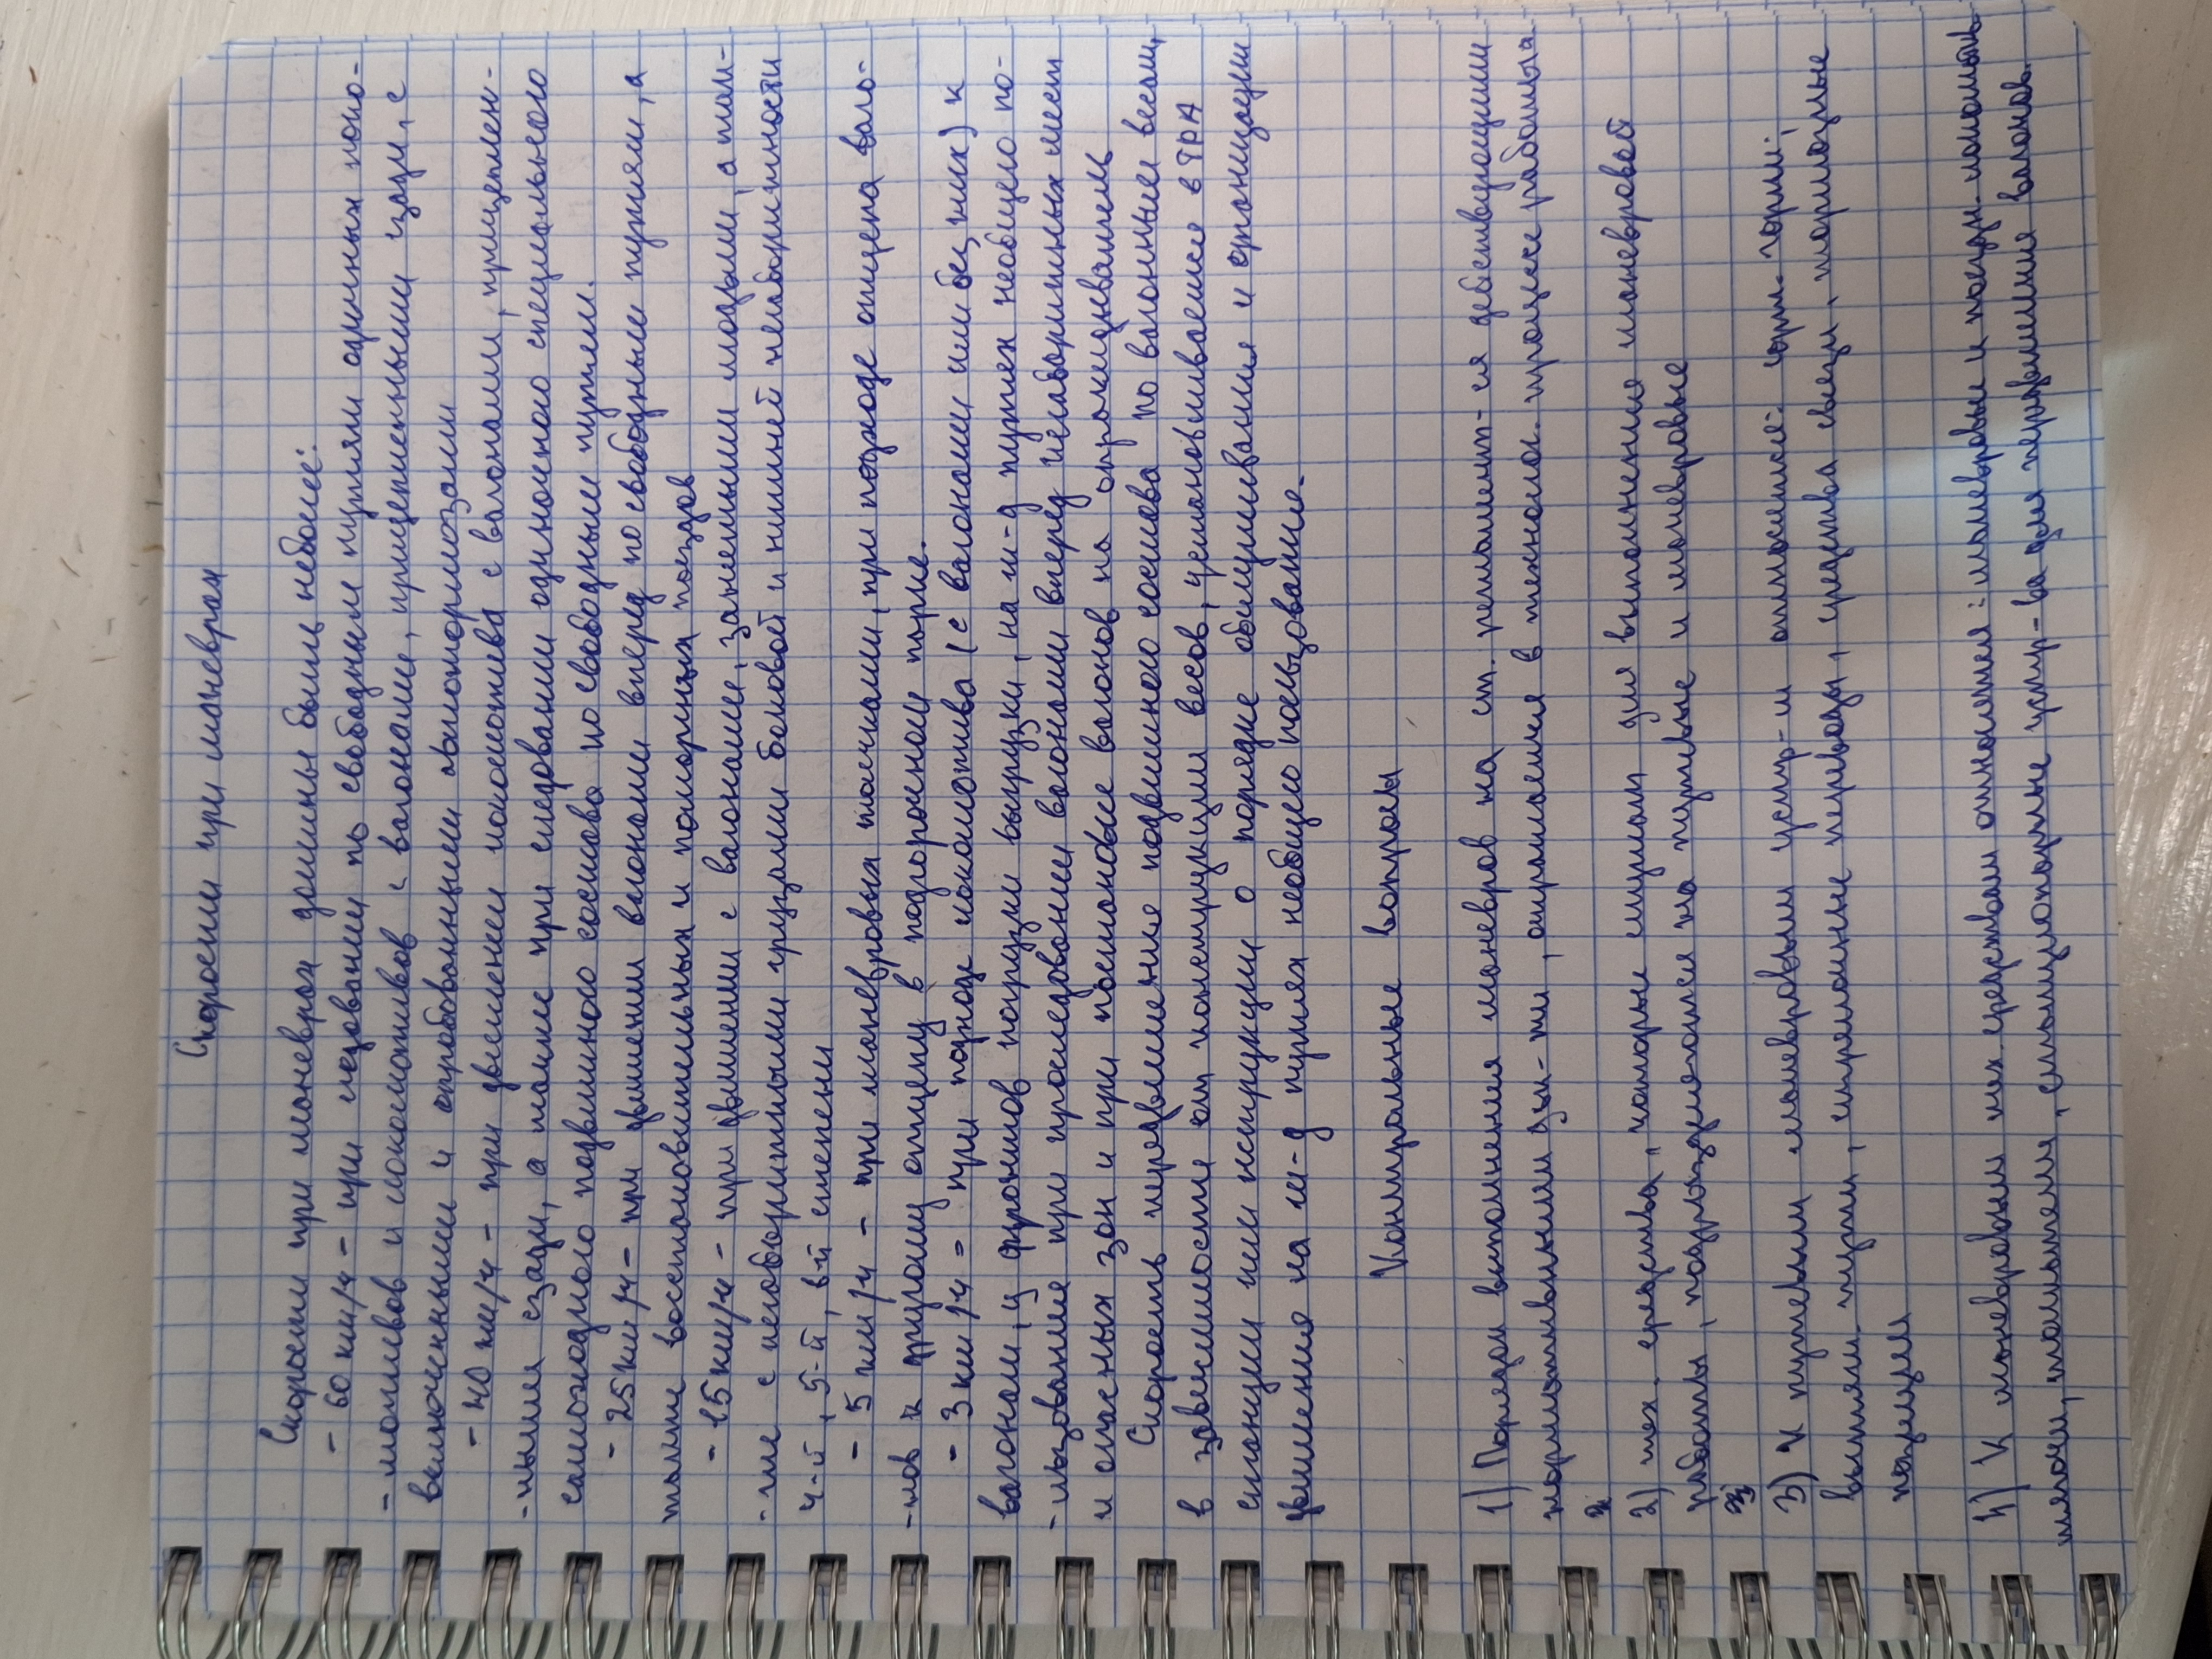 Скорости при маневрах
Скорости при маневрах должны быть не более:
- 60 км/ч - при следовании по свободным путям одиночных локо-
- мотивов и локомотивов с вагонами, прицепленными сзади, с
включенными и опробованными автотормозами
- 40 км/ч - при движении локомотива с вагонами, прицеплен-
- ными сзади, а также при следовании одиночного специального
самоходного подвижного состава по свободным путям.
- 25 км/ч - при движении вагонами вперед по свободным путям, а
также восстановительных и пожарных поездов
- 15 км/ч - при движении с вагонами, занятыми людьми, а так-
- же с негабаритными грузами боковой и нижней негабаритности
4-й, 5-й, 6-й степени
- 5 км/ч - при маневровых толчками, при подходе отцепа ваго-
- нов к другому отцепу в подгорочном парке.
- 3 км/ч = при подходе локомотива (с вагонами или без них) к
вагонам, у фронтов погрузки выгрузки, на ж-д путях необщего по-
- льзование при проследовании вагонами вперед негабаритных мест
и опасных зон и при постановке вагонов на опрокидыватель
Скорость передвижение подвижного состава по вагонным весам,
в зависимости от конструкции весов, устанавливаемые в ТРА
станции или инструкции о порядке обслуживания и организации
движения на ж-д путях необщего пользование.
Контрольные вопросы
1) Порядок выполнения маневров на ст. регламент-ся действующими
нормативными док-ти, отражается в технолог. процессе работы
2) тех. средства, которые служат для выполнения маневровой
работы, подразделяются на путевые и маневровые
3) К путевым маневровым устр-м относятся: сорт. горки,
вытяжн. пути, стрелочные переводы, средства связи, тормозные
позиции
4) К маневровым тех. средствам относятся: маневровые и поездн. локомотивы
тягачи, толкатели, стационарные устр-ва для передвижения вагонов.